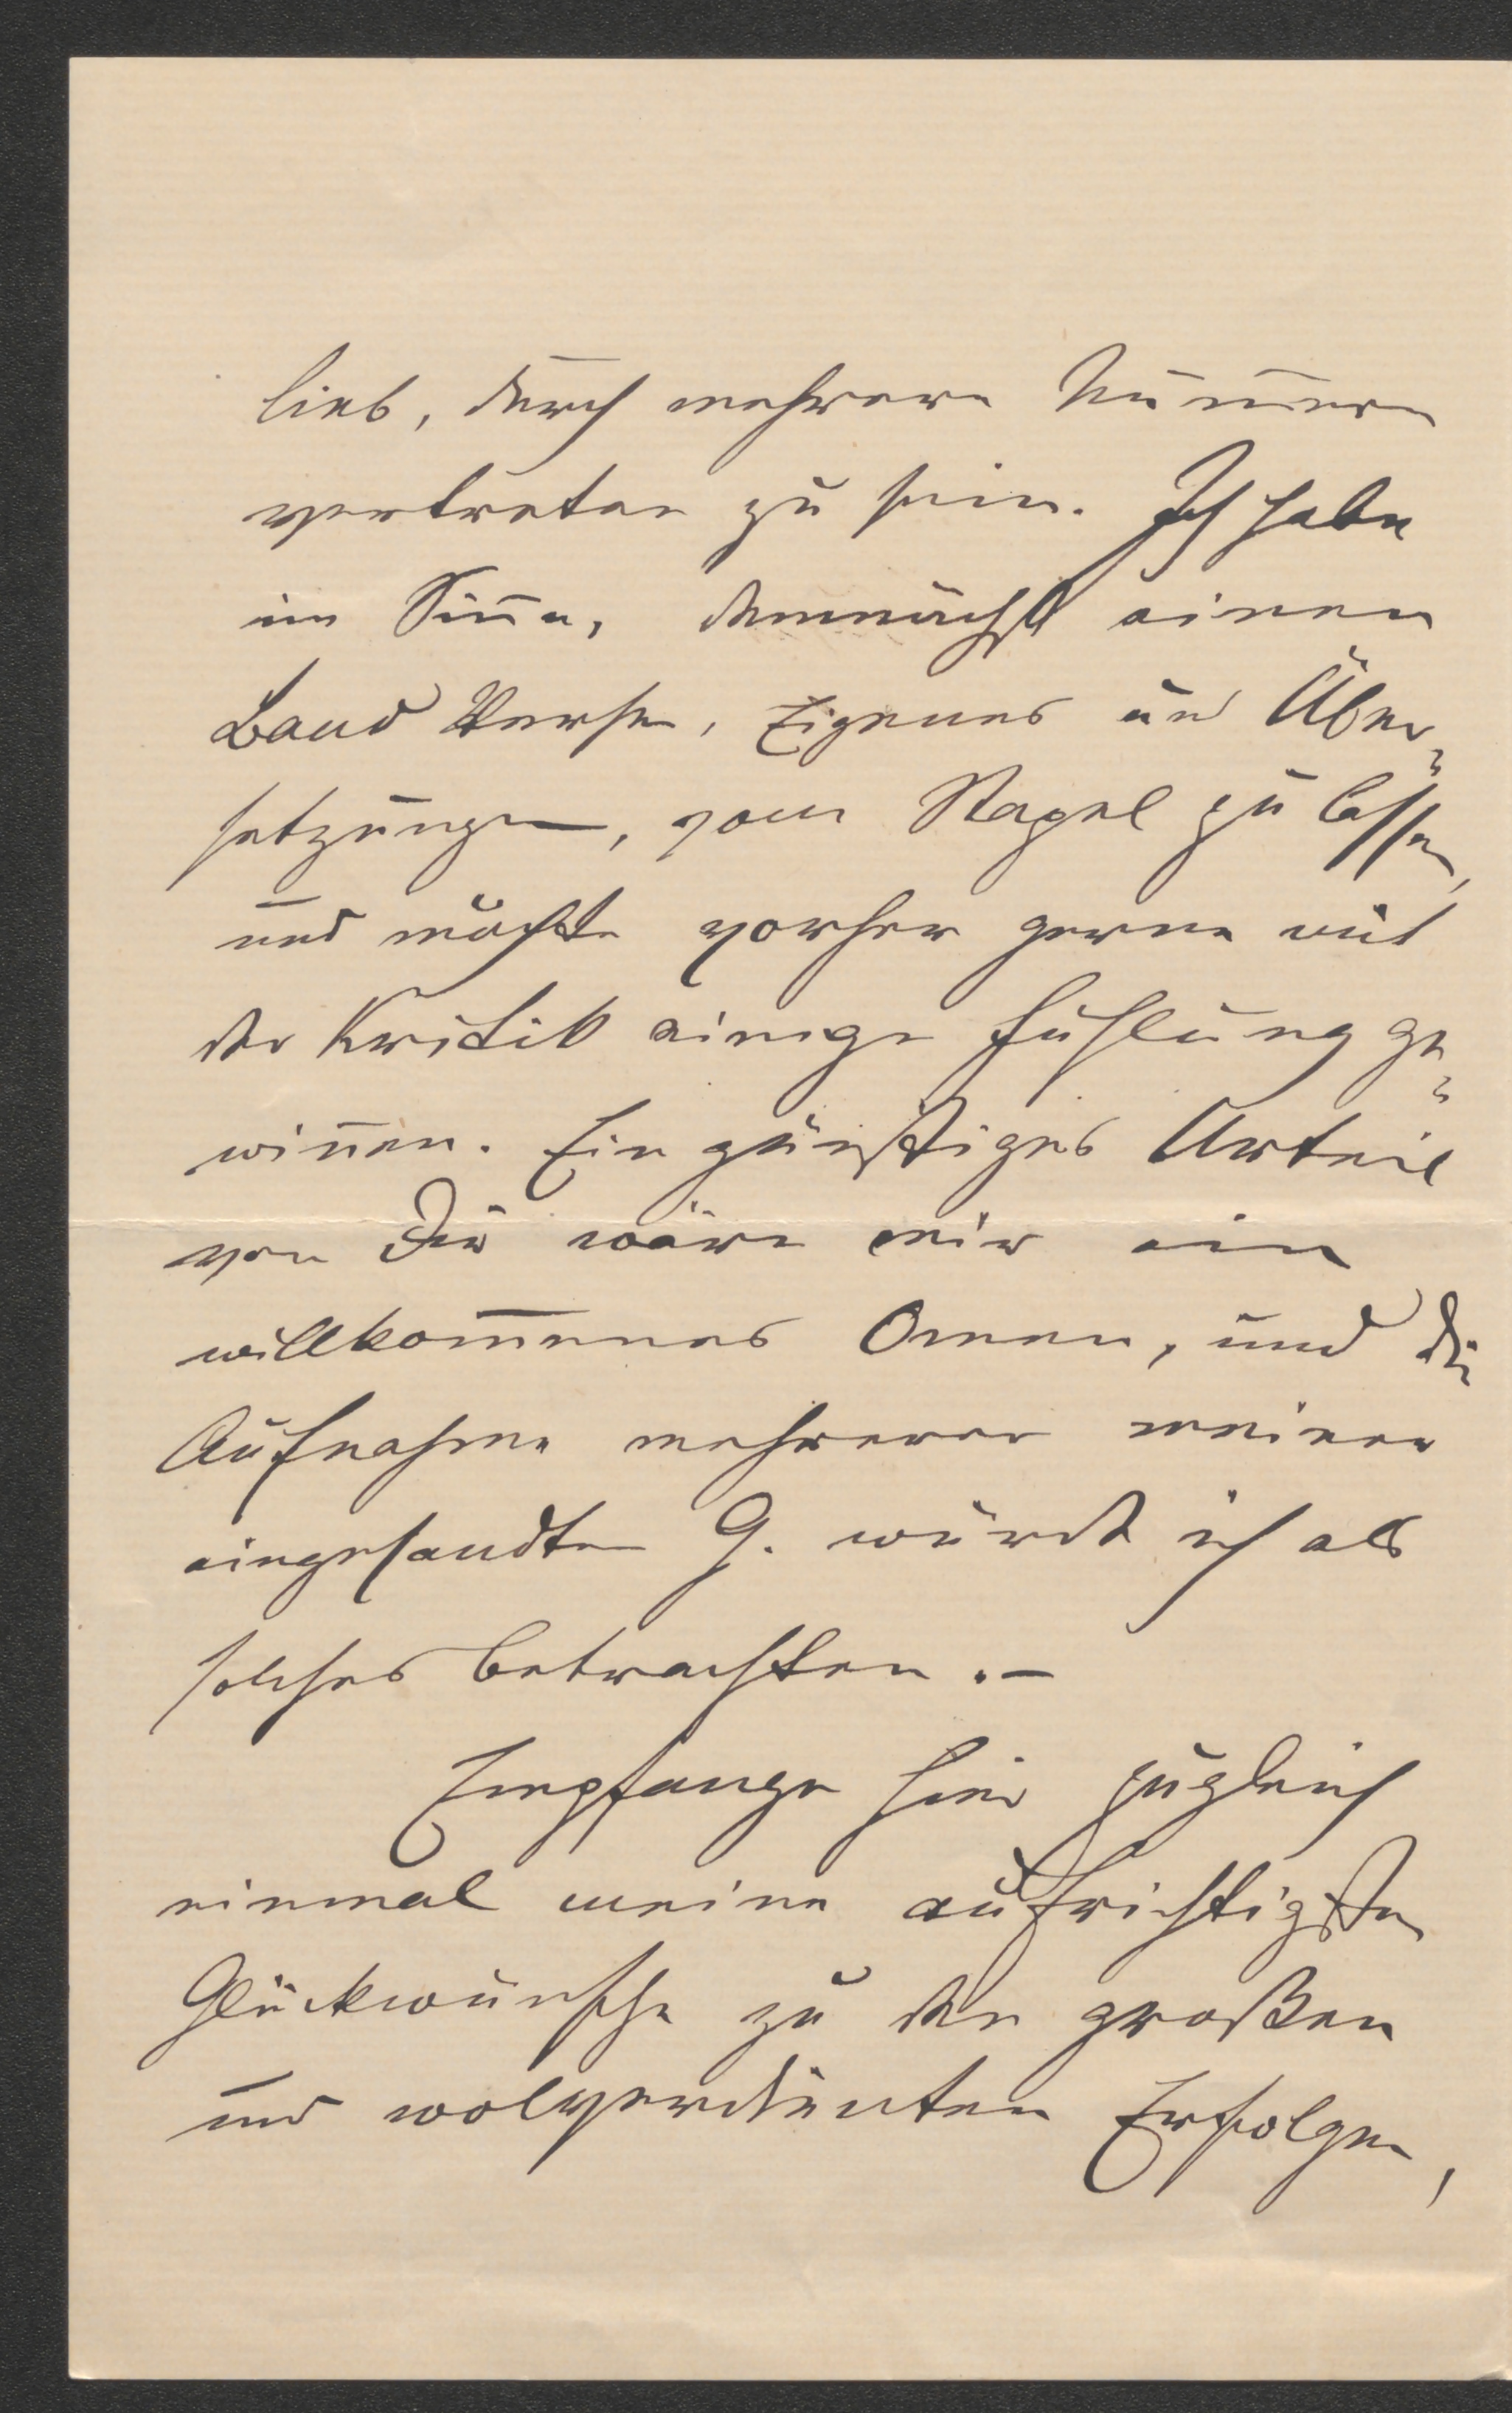 lieb, durch mehrere Num̅ern
vertreten zu sein. Ich habe
im Sin̅e, demnächst einen
Band Verse, Eigenes und Über-
setzungen, vom Stapel zu lassen,
und möchte vorher gerne mit
der Kritik einige Fühlung ge-
win̅en. Ein günstiges Urteil
von Dir wäre mir ein
willkom̅enes Omen, und die
Aufnahme mehrerer meiner
eingesandten G. würde ich als
solches betrachten. –
Empfange hier zugleich
einmal meine aufrichtigsten
Glückwünsche zu den großen
und wolverdienten Erfolgen,